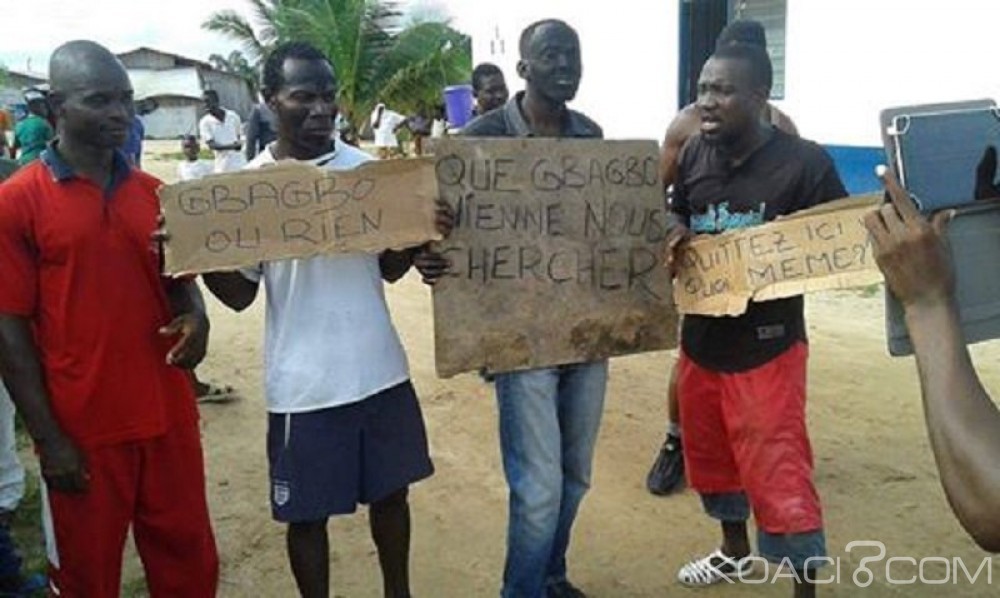 GBAGBO
OU RIEN
QUE GBAGBO
VIENNE NOUS
CHERCHER
QUITTEZ ICI
MEME?
KOACI.COM